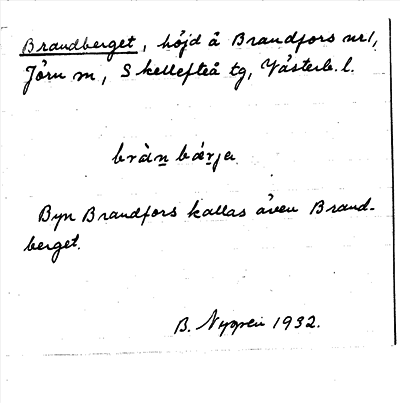 Brandberget, höjd å Brandfors nr 1,
Jörn sn, Skellefteå tg, Västerb. l.
bràn bærja
Byn Brandfors kallas även Brand-
berget.
B. 1932.